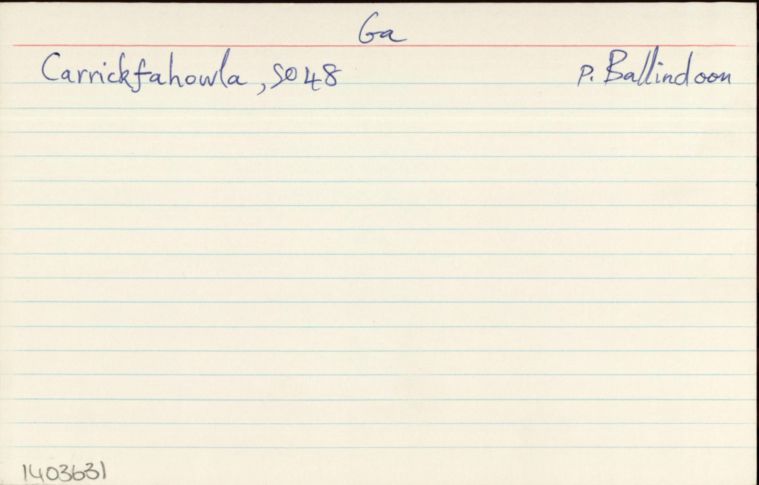 Ga
Carrickfahowla, SO 48 P. Ballindoon
1403631